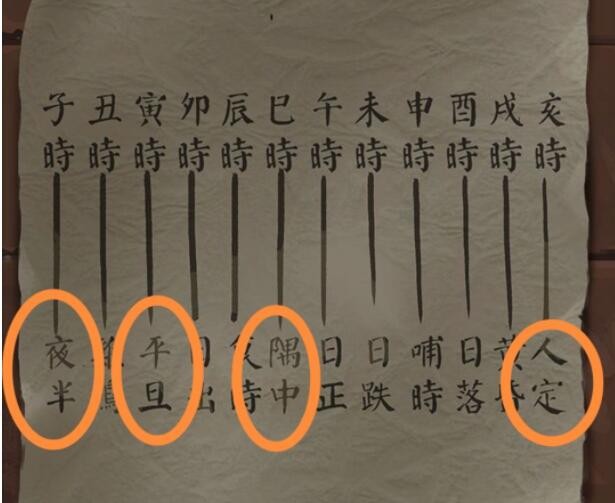 子時
夜半
丑時
寅時
平旦
卯時
日出
辰時
食時
巳時
隅中
午時
日正
未時
日跌
申時
哺時
酉時
日落
戌時
黄昏
亥時
人定